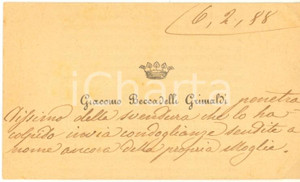 6, 2, 88
Giacomo Beccadelli Grimaldi penetra
tissimo della sventura che lo ha
colpito invia condoglianze sentite a
nome ancora della propria moglie.
iCharta